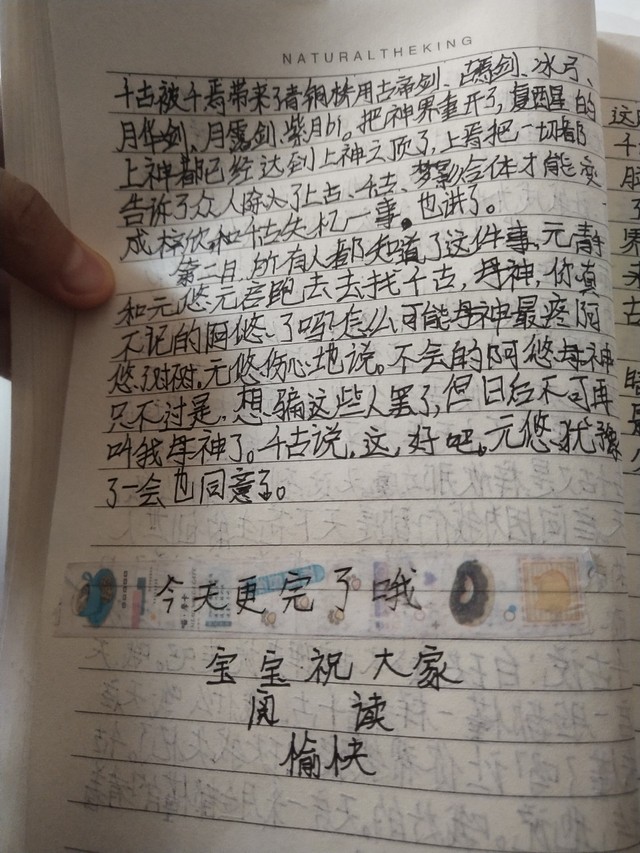 NATURALTHEKING
千古被千焉带来了青铜桥用古帝剑、古焉剑、冰弓、
月华剑、月露剑、紫月。把神界重开了,复醒的
上神都已经达到上神之顶了,上焉把一切都
告诉了众人除了上古、千古、梦影合体才能变
成梓欣和千古失忆一事。也讲了。
第二日,所有人都知道了这件事,元静
和元悠元容跑去去找千古,母神,你真
不记的阿悠了吗?怎么可能母神最疼阿
悠了。元悠伤心地说。不会的阿悠母神
只不过是,想骗这些人罢了,但日后不可再
叫我母神了。千古说,这,好吧。元悠犹豫
了一会也同意了。
今天更完了哦
宝宝祝大家
阅读
愉快